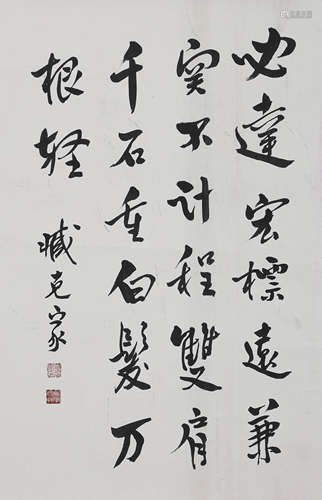 必達宏標遠兼
突不計程雙肩
千石重白髮万
根輕
臧克家